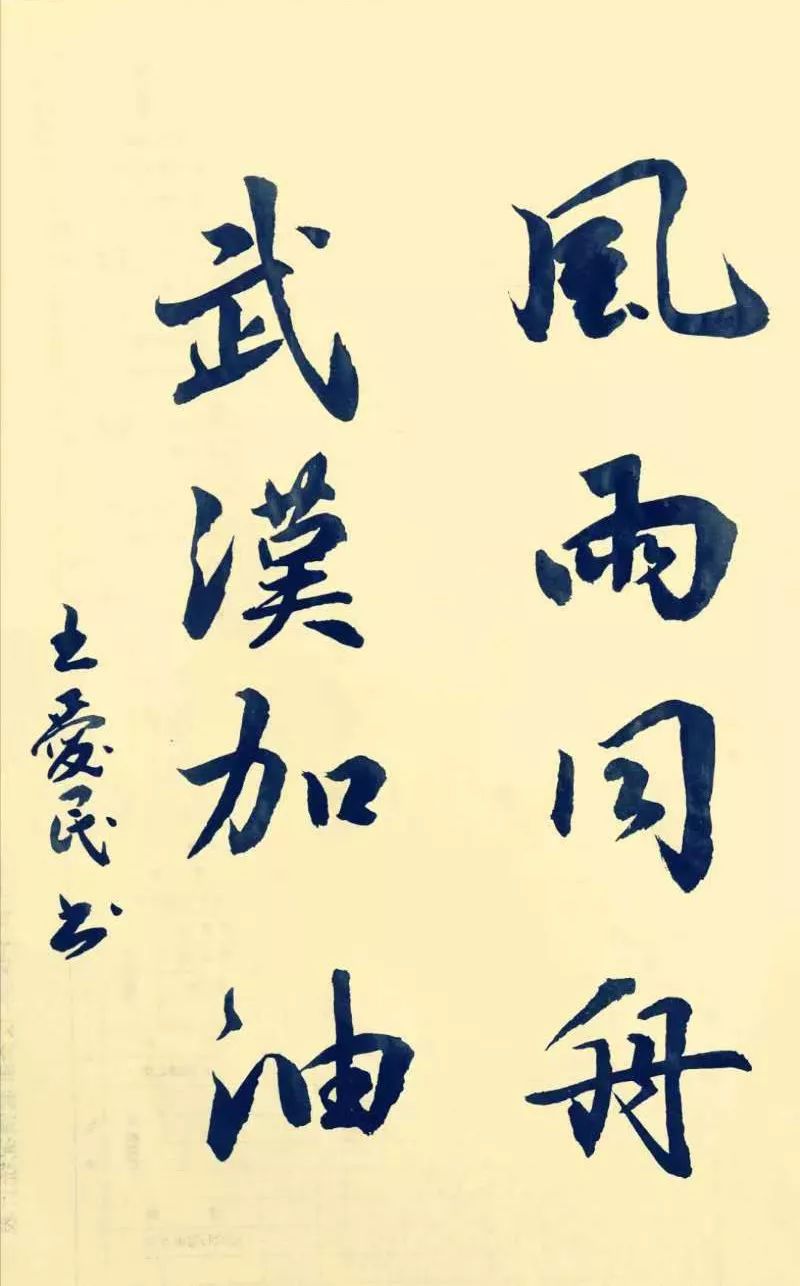 風雨同舟
武漢加油
王愛民书